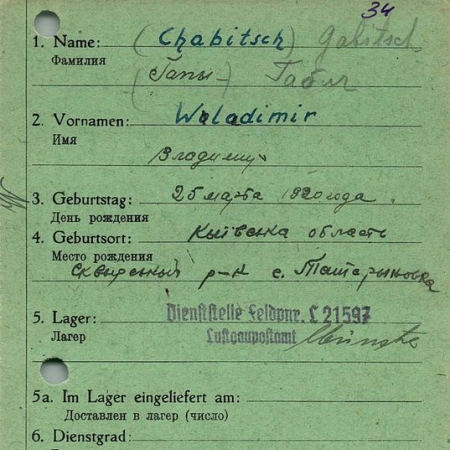 34
1. Name: (Chabitsch) Gabitsch
Фамилия
2. Vornamen: Woladimir
Имя Владимир
3. Geburtstag: 25 марта 1920 года.
День рождения
4. Geburtsort: Київська область
Место рождения
Сквирський р-н с. Татарыновка
5. Lager: Dienststelle Feldpnr. L 21597
Лагер Luftgaupostamt
5a. Im Lager eingeliefert am:
Доставлен в лагер (число)
6. Dienstgrad: